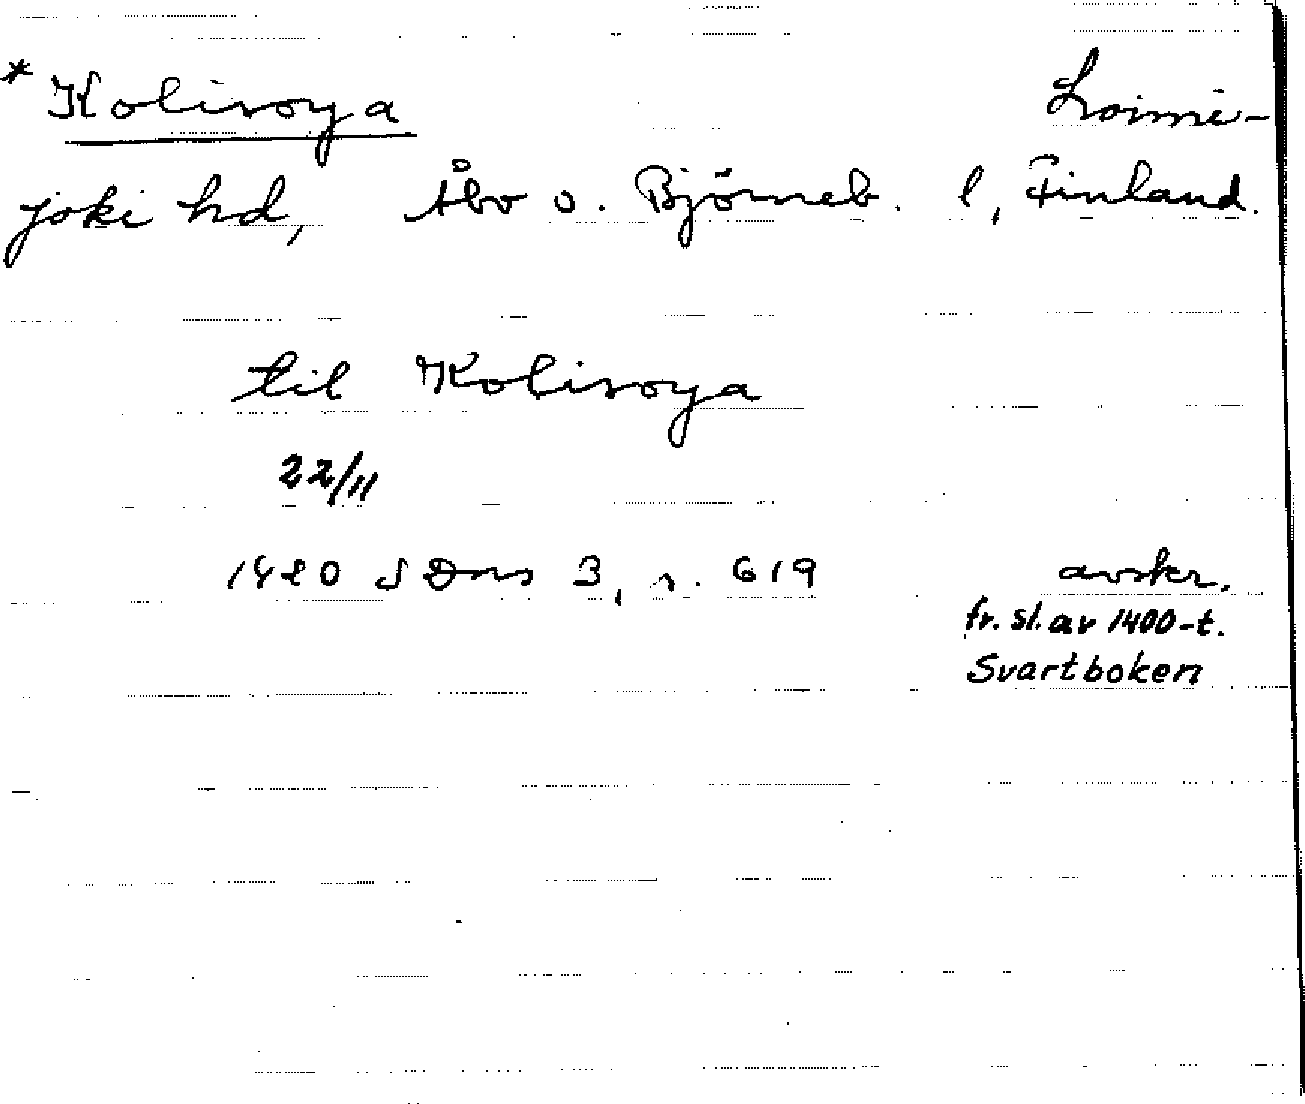 * Kolisoya Loimi-
joki hd, Åbo o. Björneb. l, Finland.
til Kolisoya
22/11
1420 SDns 3, s. 619 avskr.
fr. sl. av 1400-t.
Svartboken